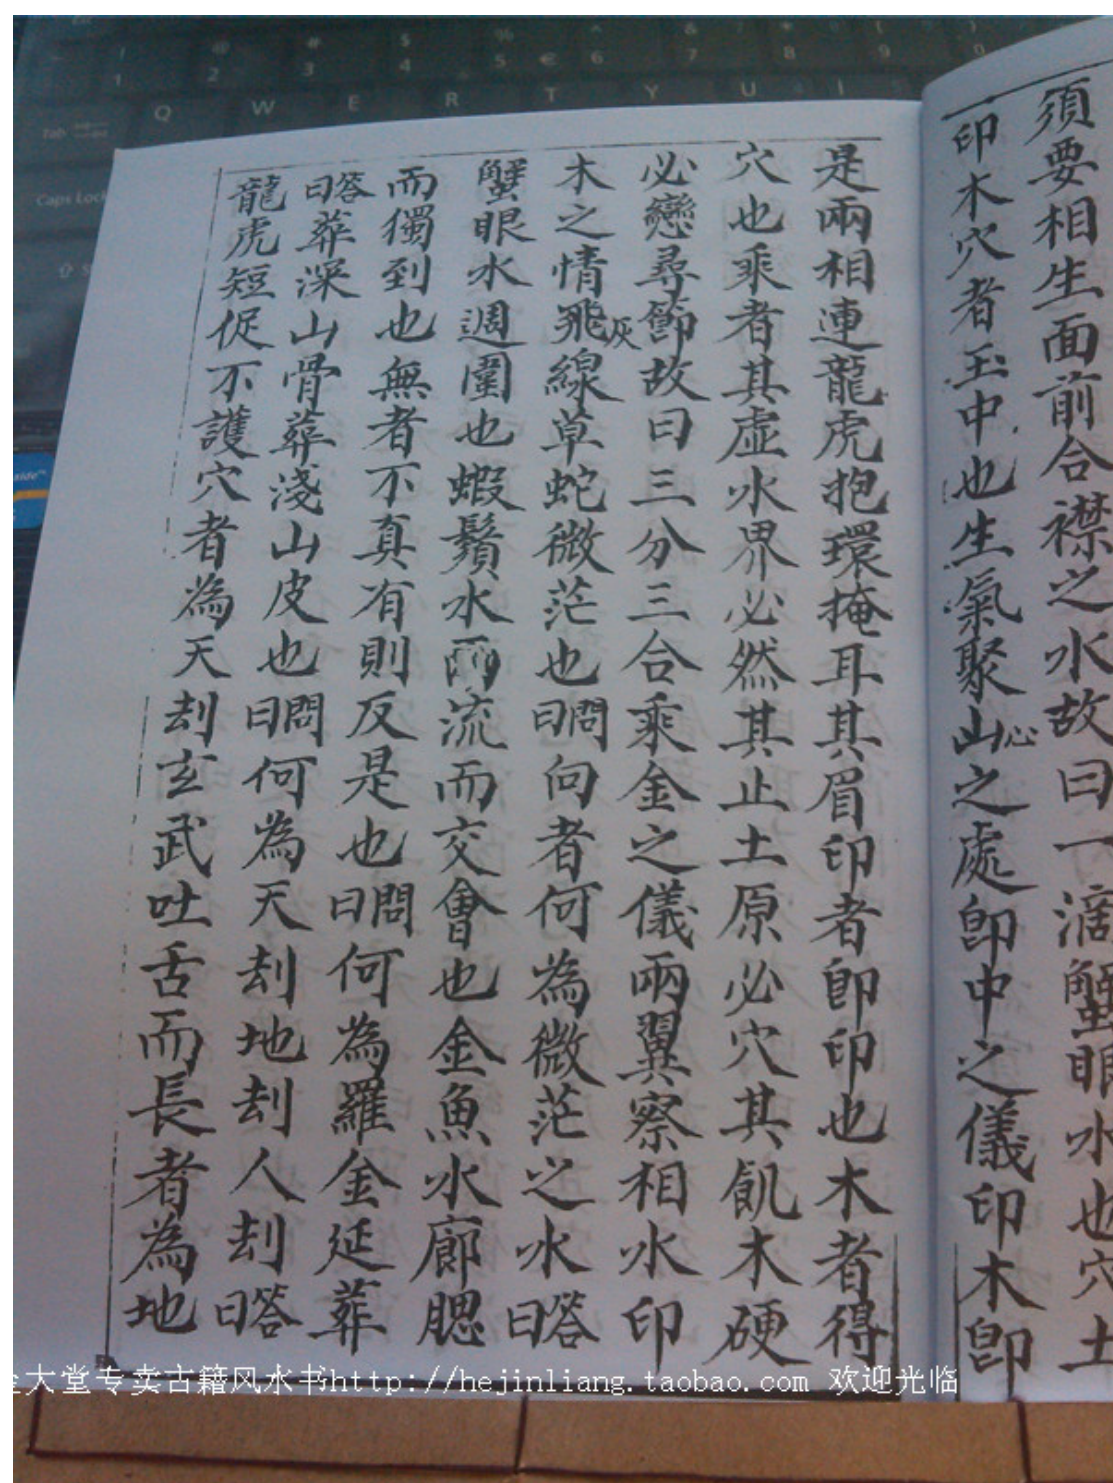 須要相生面前合襟之水故曰一滴蟹眼水也穴土
印木穴者玉中也生氣聚山心之處卽中之儀印木卽
是兩相連龍虎抱環掩耳其眉印者卽印也木者得
穴也乘者其虛水界必然其止土原必穴其飢木硬
必戀尋節故曰三分三合乘金之儀兩翼察相水印
木之情飛灰線草蛇微茫也問曰向者何為微茫之水答曰
蟹眼水週圍也蝦鬚水兩流而交會也金魚水廊腮
而獨到也無者不真有則反是也問曰何為羅金延葬
答曰葬深山骨葬淺山皮也問曰何為天刦地刦人刦答曰
龍虎短促不護穴者為天刦玄武吐舌而長者為地
大堂专卖古籍风水书http://hejinliang.taobao.com 欢迎光临
Q W E R T Y U I
Tab
Caps Lock